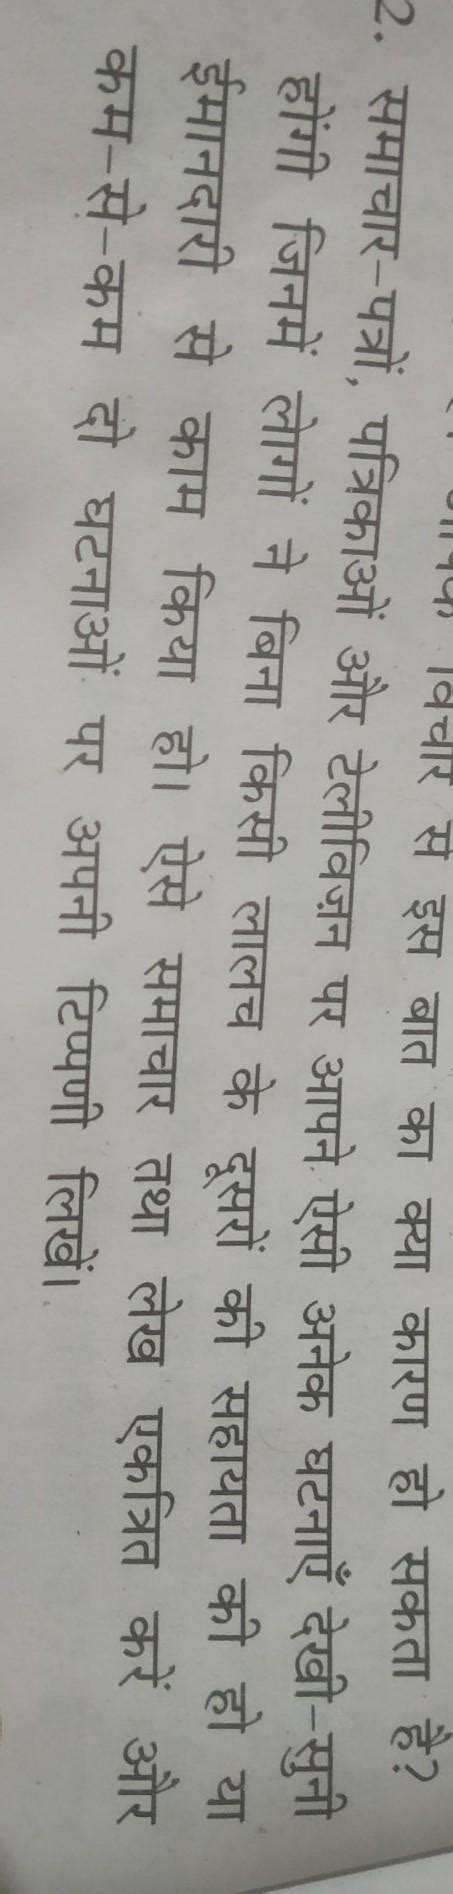 विचार से इस बात का क्या कारण हो सकता है?
2. समाचार-पत्रों, पत्रिकाओं और टेलीविज़न पर आपने ऐसी अनेक घटनाएँ देखी-सुनी
होंगी जिनमें लोगों ने बिना किसी लालच के दूसरों की सहायता की हो या
ईमानदारी से काम किया हो। ऐसे समाचार तथा लेख एकत्रित करें और
कम-से-कम दो घटनाओं पर अपनी टिप्पणी लिखें।